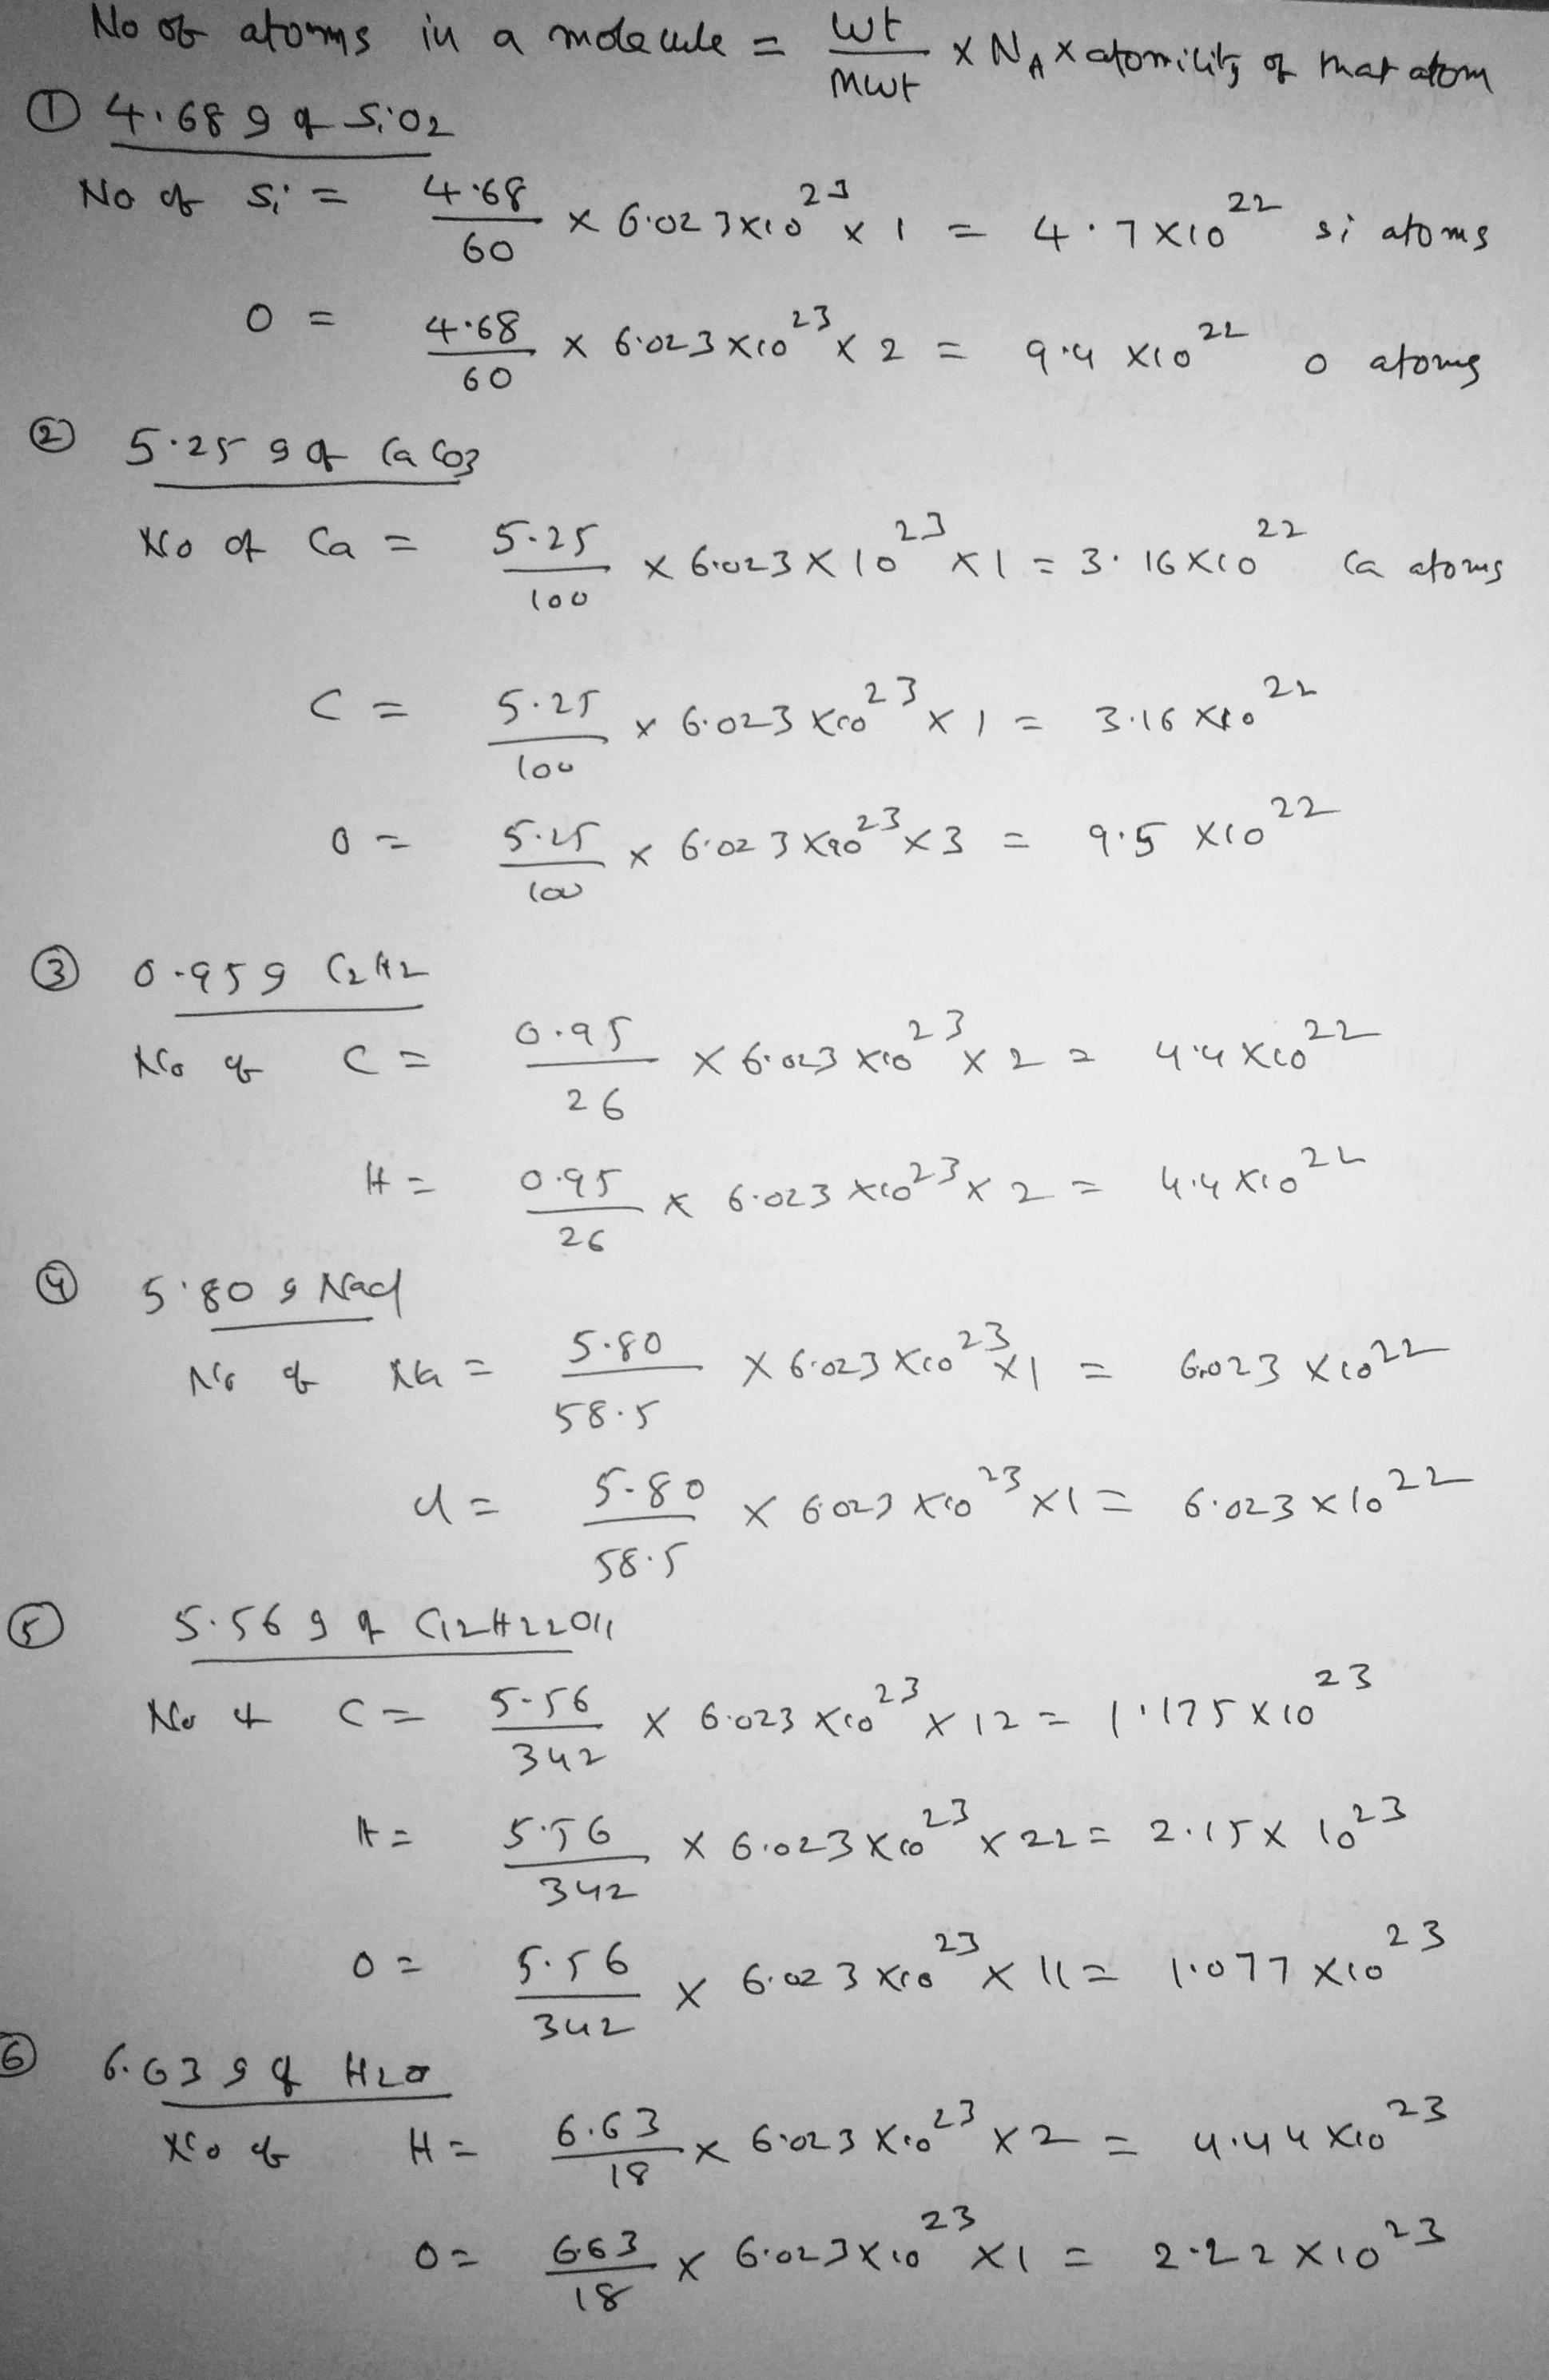 No of atoms in a molecule = Wt/Mwt × N_A × atomicity of that atom
① 4.68 g of SiO2
No of Si = 4.68/60 × 6.023×10^23 × 1 = 4.7×10^22 si atoms
O = 4.68/60 × 6.023×10^23 × 2 = 9.4×10^22 O atoms
② 5.25 g of CaCO3
No of Ca = 5.25/100 × 6.023×10^23 × 1 = 3.16×10^22 Ca atoms
C = 5.25/100 × 6.023×10^23 × 1 = 3.16×10^22
O = 5.25/100 × 6.023×10^23 × 3 = 9.5×10^22
③ 0.95g C2H2
No of C = 0.95/26 × 6.023×10^23 × 2 = 4.4×10^22
H = 0.95/26 × 6.023×10^23 × 2 = 4.4×10^22
④ 5.80 g NaCl
No of Na = 5.80/58.5 × 6.023×10^23 × 1 = 6.023×10^22
Cl = 5.80/58.5 × 6.023×10^23 × 1 = 6.023×10^22
⑤ 5.56 g of C12H22O11
No of C = 5.56/342 × 6.023×10^23 × 12 = 1.175×10^23
H = 5.56/342 × 6.023×10^23 × 22 = 2.15×10^23
O = 5.56/342 × 6.023×10^23 × 11 = 1.077×10^23
⑥ 6.63 g of H2O
No of H = 6.63/18 × 6.023×10^23 × 2 = 4.44×10^23
O = 6.63/18 × 6.023×10^23 × 1 = 2.22×10^23